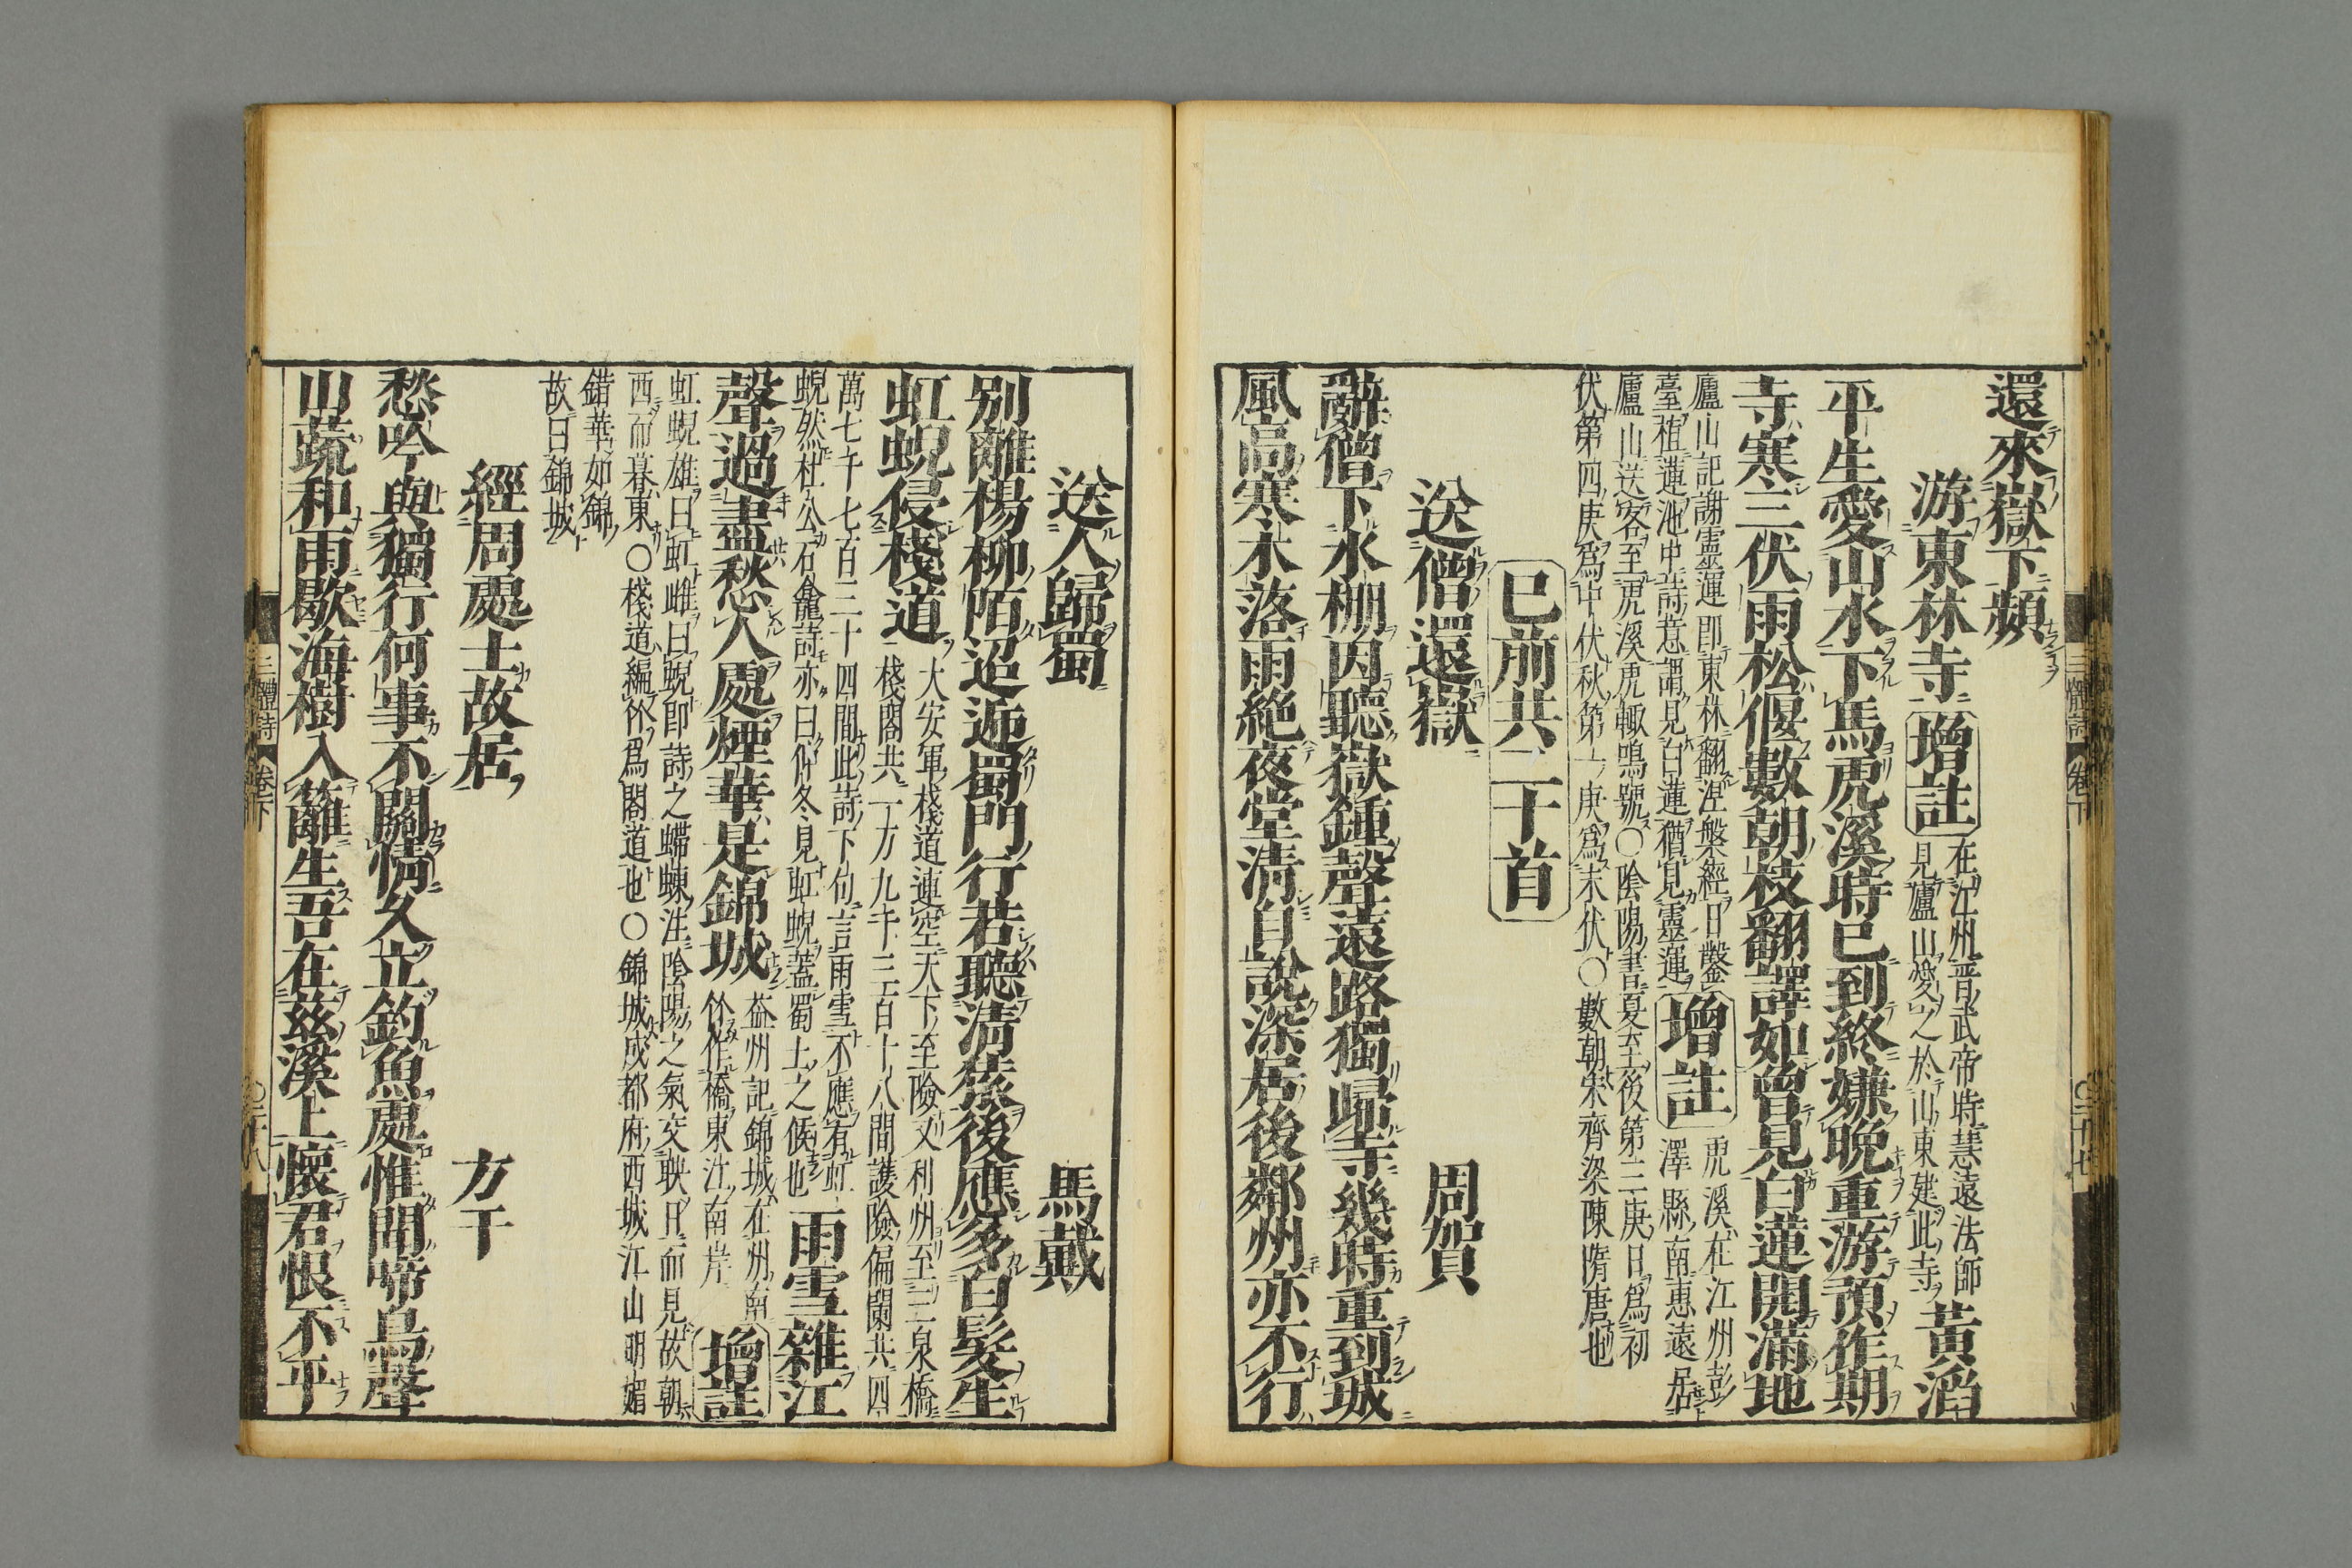 還來嶽下頻
游東林寺 增註 在江州晋武帝時慧遠法師見廬山愛之於山東建此寺 黃滔
平生愛山水下馬虎溪時已到終嫌晚重游預作期
寺寒三伏雨松偃數朝枝翻譯如曾見白蓮開滿地
廬山記謝靈運即東林翻涅槃經曰鑿
臺植蓮池中詩意謂見白蓮猶見靈運 增註 虎溪在江州彭澤縣南惠遠居
廬山送客至虎溪虎輙鳴號○陰陽書夏至後第三庚日爲初
伏第四庚爲中伏秋第一庚爲末伏○數朝宋齊梁陳隋唐也
已前共二十首
送僧還嶽 周賀
辭僧下水棚因聽嶽鍾聲遠路獨歸寺幾時重到城
風高寒木落雨絶夜堂清自說深居後鄰州亦不行
三體詩 卷下 ○二十七
送人歸蜀 馬戴
別離楊柳陌迢遞蜀門行若聽清猿後應多白髮生
虹蜺侵棧道 大安軍棧道連空天下至險又利州至三泉橋
棧閣共一万九千三百十八間護險偏闌共四
萬七千七百三十四間此詩下句言雨雪不應有虹
蜺然杜公石龕詩亦曰仲冬見虹蜺蓋蜀土之候也 雨雪雜江
聲過盡愁人處煙華是錦城 益州記錦城在州南笮作橋東江南岸 增註
虹蜺雄曰虹雌曰蜺即詩之螮蝀注陰陽之氣交映日而見故朝
西而暮東○棧道編竹爲閣道也○錦城成都府西城江山明媚
錯華如錦
故曰錦城
經周處士故居 方干
愁吟與獨行何事不關情久立釣魚處惟聞啼鳥聲
山蔬和雨歇海樹入籬生吾在茲溪上懷君恨不平
三體詩 卷下 ○二十八